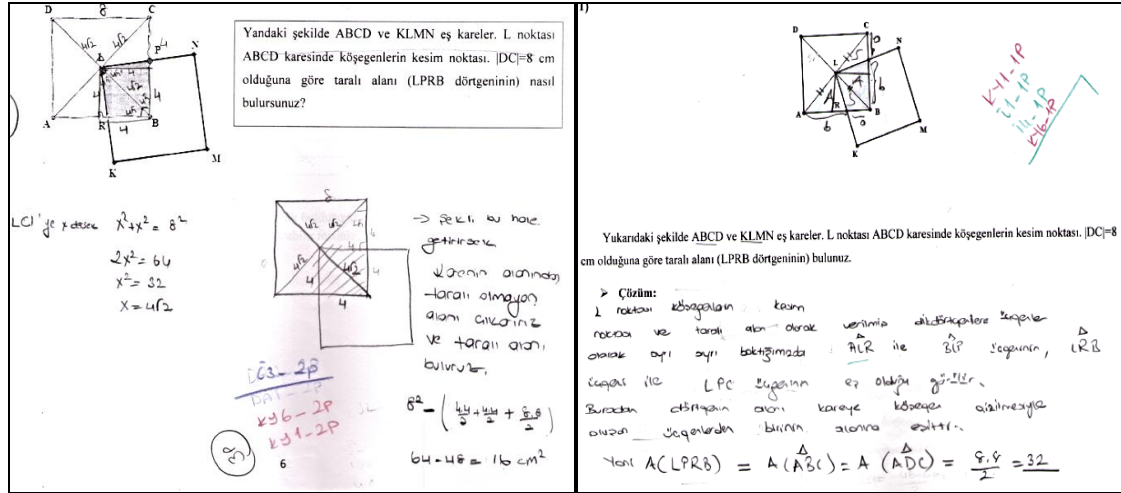 D 8 C
4√2 4√2 4
P N
L
4 4√2 4
A R 4 B
K M
Yandaki şekilde ABCD ve KLMN eş kareler. L noktası
ABCD karesinde köşegenlerin kesim noktası. |DC|=8 cm
olduğuna göre taralı alanı (LPRB dörtgeninin) nasıl
bulursunuz?
|LC|'ye x desek x²+x²= 8²
2x²= 64
x²= 32
x= 4√2
8
4√2 4√2
4√2 4 4√2 4
4
→ Şekli bu hale
getirirsek
Karenin alanından
taralı olmayan
alanı çıkarırız
ve taralı alanı
buluruz.
8² - (4.4/2 + 4.4/2 + 8.8/2)
64-48 = 16 cm²
İ3-2P
KY6-2P
KY1-2P
6
1)
D C
N
L
A R B
b a
M
K
KY1-1P
İ1-1P
İ4-1P
KY6-1P
Yukarıdaki şekilde ABCD ve KLMN eş kareler. L noktası ABCD karesinde köşegenlerin kesim noktası. |DC|=8
cm olduğuna göre taralı alanı (LPRB dörtgeninin) bulunuz.
➤ Çözüm:
L noktası köşegenlerin kesim
noktası ve taralı alan olarak verilmiş dikdörtgenlere üçgenler
olarak ayrı ayrı baktığımda ALR ile BLP üçgeninin, LRB
üçgeni ile LPC üçgeninin eş olduğu görülür.
Buradan dörtgenin alanı kareye köşegen çizilmesiyle
oluşan üçgenlerden birinin alanına eşittir.
Yani A(LPRB) = A(ABC) = A(ADC) = 8.8/2 = 32